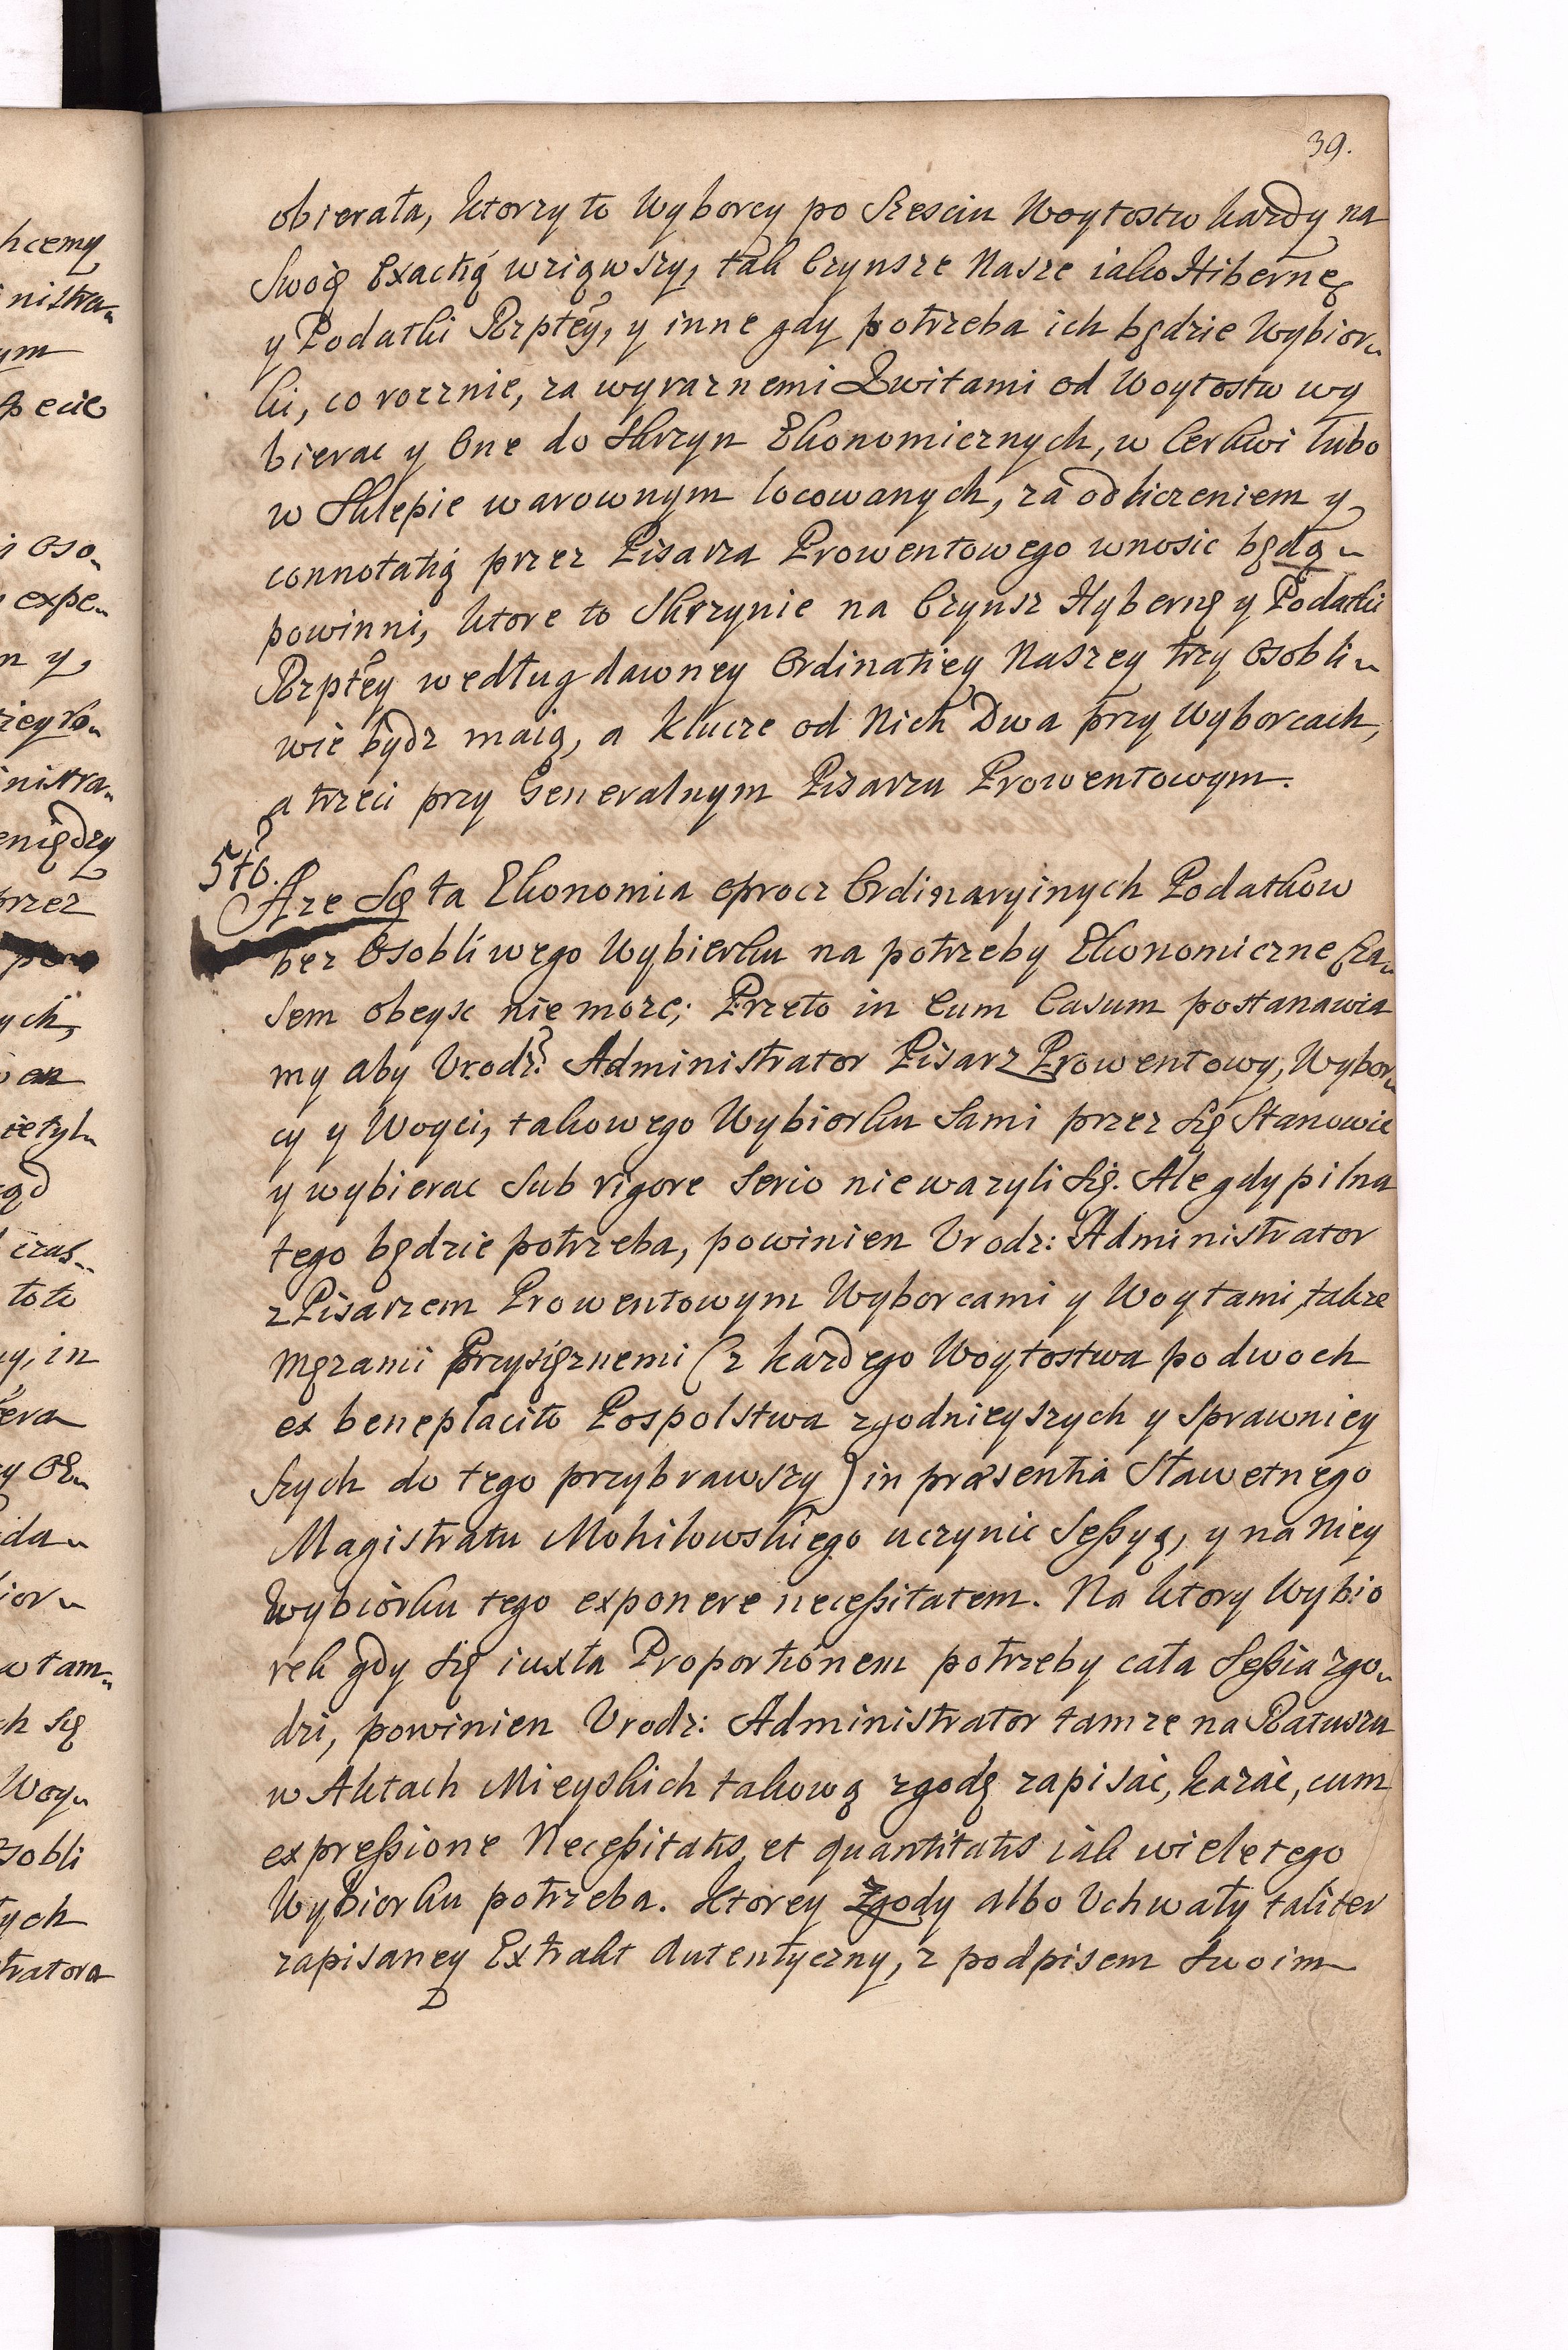 39.
obierała, ktorzy to Wyborcy po Szesciu Woytostw każdy na
Swoię Exactią wziąwszy, tak Czynsze Nasze iako Hibernę
y Podatki Rzpłey, y inne gdy potrzeba ich będzie Wybior„
ki, co rocznie, za wyraznemi Kwitami od Woytostw wy
bierac y One do Skrzyn Ekonomicznych, w Cerkwi lubo
w Sklepie warownym locowanych, za odliczeniem y
connotatią przez Pisarza Prowentowego wnosic będą„
powinni, ktore to Skrzynie na Czynsz Hybernę y Podatki
Rzpłey według dawney Ordinatiey Naszey trzy Osobli„
wie bydz maią, a klucze od Nich Dwa przy Wyborcach,
a trzeci przy Generalnym Pisarzu Prowentowym.
5to.
Aze Się ta Ekonomia oprocz Ordinaryinych Podatkow
bez Osobliwego Wybierku na potrzeby Ekonomiczne Cza„
sem obeysc nie moze; Przeto in Eum Casum postanawia
my aby Urodz: Administrator Pisarz Prowentowy, Wybor„
cy y Woyci, takowego Wybiorku Sami przez Się Stanowic
y wybierac Sub rigore Serio nie wazyli Się. Ale gdy pilna
tego będzie potrzeba, powinien Urodz: Administrator
z Pisarzem Prowentowym Wyborcami y Woytami, takze
Męzami Przysięznemi (z kazdego Woytostwa po dwoch
ex beneplacito Pospolstwa zgodnieyszych y Sprawniey
Szych do tego przybrawszy) in præsentia Sławetnego
Magistratu Mohilowskiego uczynic Seßyą, y na Niey
Wybiorku tego exponere neceßitatem. Na ktory Wybio
rek gdy Się iuxta Proportionem potrzeby cała Seßia zgo„
dzi, powinien Urodz: Administrator tamze na Ratuszu
w Aktach Mieyskich takową zgodę zapisać, kazać, cum
expreßione Neceßitatis, et quantitatis iak wiele tego
Wybiorku potrzeba. Ktorey Zgody albo Uchwały taliter
zapisaney Extrakt Autentyczny, z podpisem Swoim